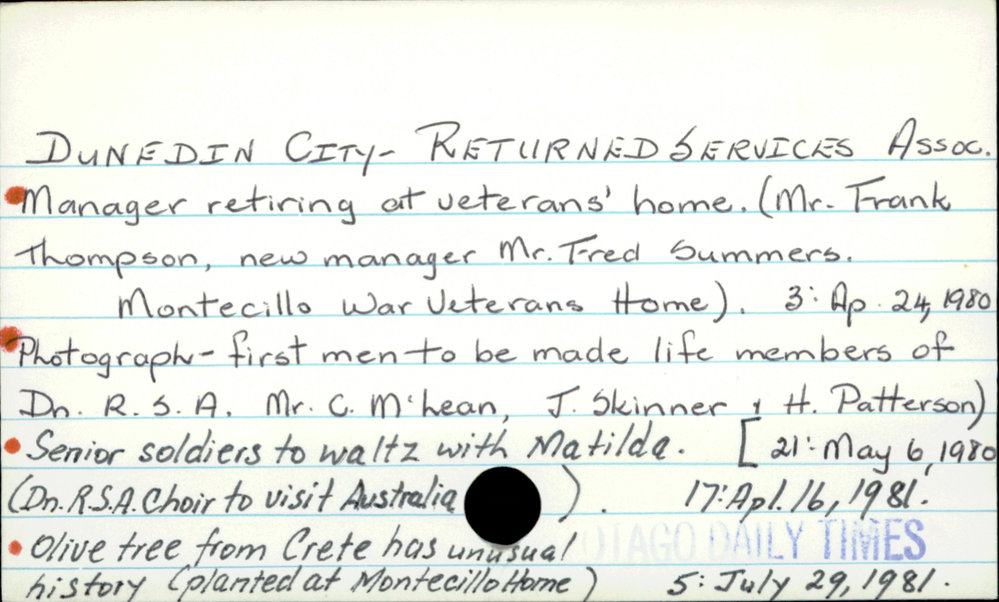 DUNEDIN CITY- RETURNED SERVICES Assoc.
Manager retiring at veterans' home. (Mr. Frank
Thompson, new manager Mr. Fred Summers.
Montecillo War Veterans Home). 3: Ap. 24, 1980
Photograph- first men to be made life members of
Dn. R. S. A. Mr. C. M'Lean, J. Skinner & H. Patterson)
Senior soldiers to waltz with Matilda. [21: May 6, 1980
(Dn. R.S.A. Choir to visit Australia ). 17: Apl. 16, 1981.
Olive tree from Crete has unusual OTAGO DAILY TIMES
history (planted at Montecillo Home) 5: July 29, 1981.